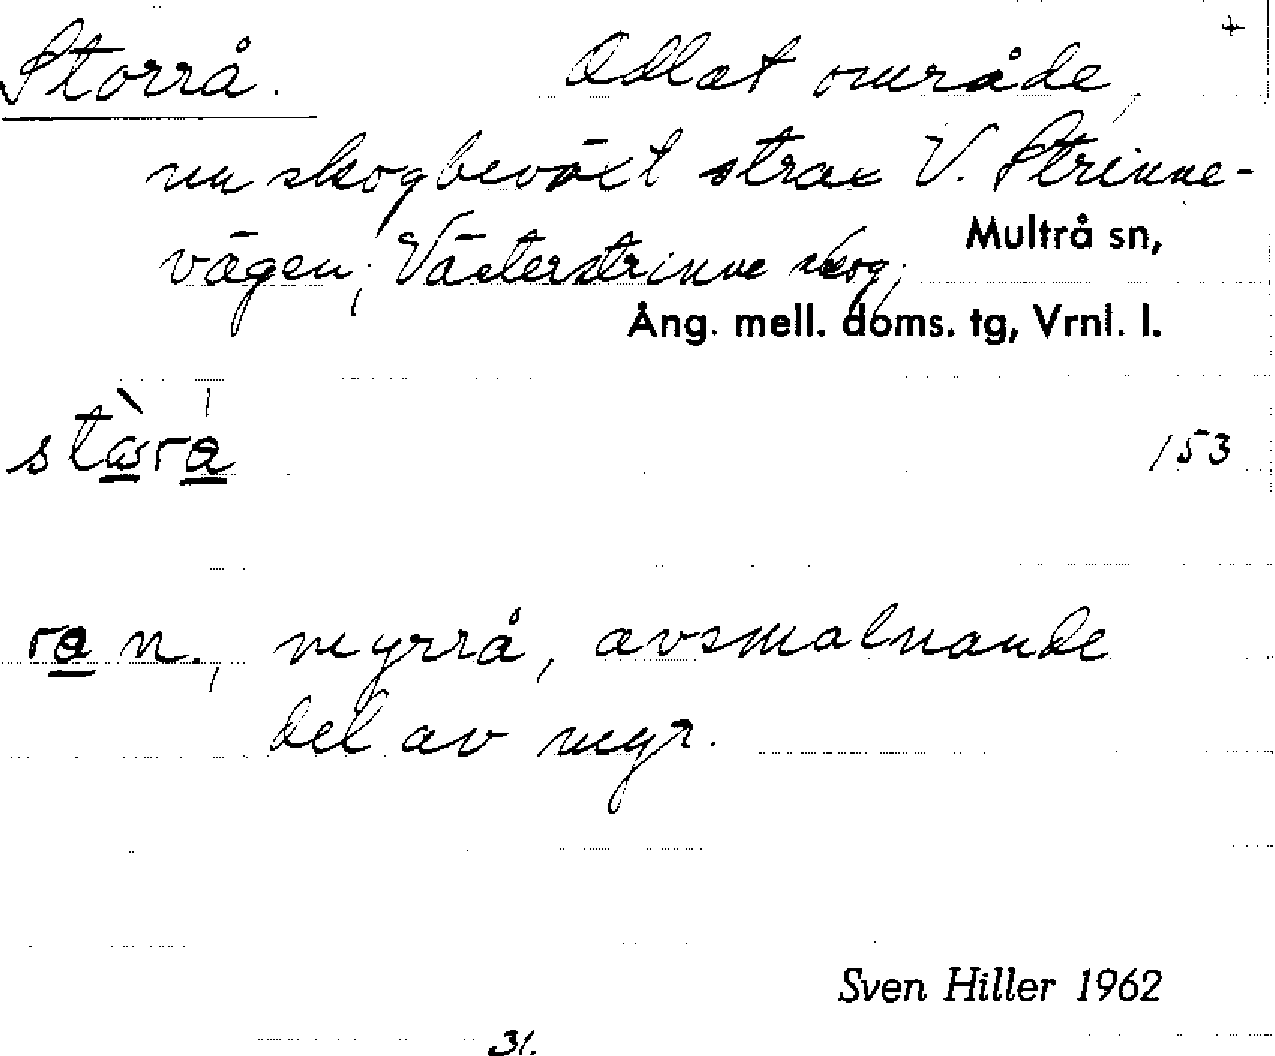 +
Storrå. Odlat område,
nu skogbeväxt strax V. Strinne-
vägen; Västerstrinne skog,
Multrå sn,
Ång. mell. doms. tg, Vrnl. l.
153
n., myrrå, avsmalnande
del av myr.
Sven Hiller 1962
31.